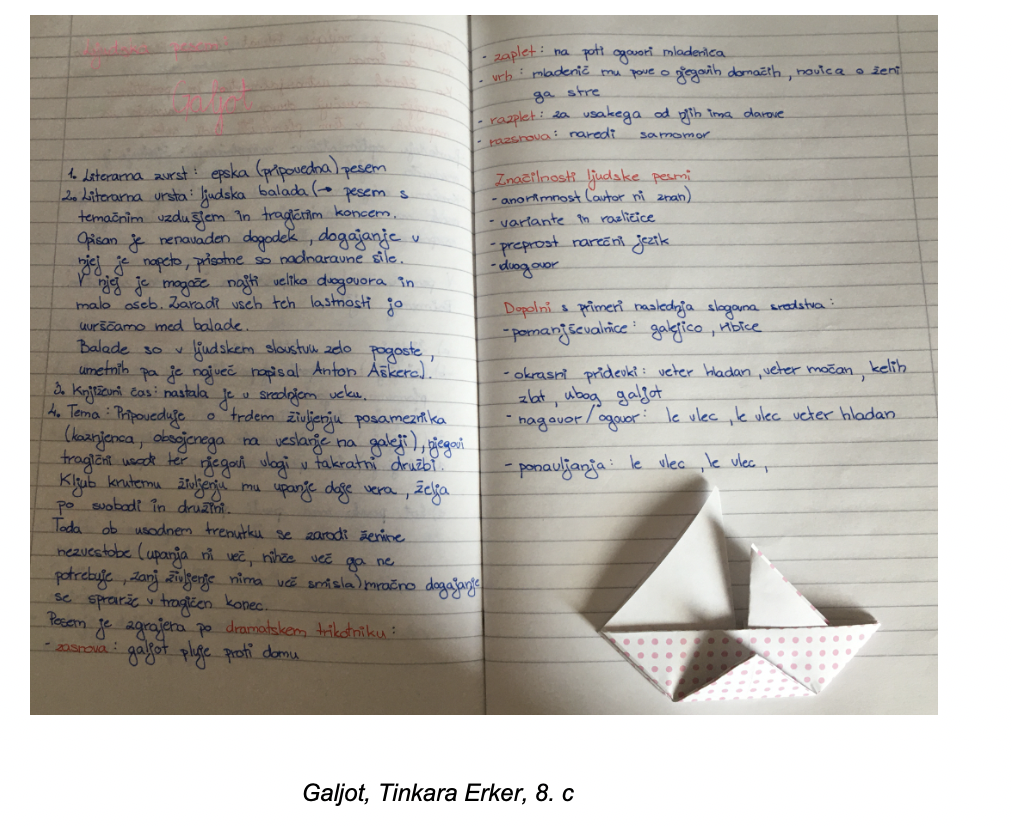 Ljudske pesmi
Galjot
1. Literarna zvrst: epska (pripovedna) pesem
2. Literarna vrsta: ljudska balada (→ pesem s
temačnim vzdušjem in tragičnim koncem.
Opisan je nenavaden dogodek, dogajanje v
njej je napeto, prisotne so nadnaravne sile.
V njej je mogoče najti veliko dvogovora in
malo oseb. Zaradi vseh teh lastnosti jo
uvrščamo med balade.
Balade so v ljudskem slovstvu zelo pogoste,
umetnih pa je največ napisal Anton Aškerc).
3. Književni čas: nastala je v srednjem veku.
4. Tema: Pripoveduje o trdem življenju posameznika
(kaznjenca, obsojenega na veslanje na galeji), njegovi
tragični usodi ter njegovi vlogi v takratni družbi.
Kljub krutemu življenju mu upanje daje vera, želja
po svobodi in družini.
Toda ob usodnem trenutku se zarodi ženine
nezvestobe (upanja ni več, nihče več ga ne
potrebuje, zanj življenje nima več smisla) mračno dogajanje
se sprevrže v tragičen konec.
Pesem je zgrajena po dramatskem trikotniku:
- zasnova: galjot pluje proti domu
- zaplet: na poti ogovori mladeniča
- vrh: mladenič mu pove o njegovih domačih, novica o ženi
ga stre
- razplet: za vsakega od njih ima darove
- razsnova: naredi samomor
Značilnosti ljudske pesmi
- anonimnost (avtor ni znan)
- variante in različice
- preprost narečni jezik
- dvogovor
Dopolni s primeri naslednja slogovna sredstva:
- pomanjševalnice: galejico, ribice
- okrasni pridevki: veter hladan, veter močan, kelih
zlat, ubog galjot
- nagovor/ogovor: le vlec, le vlec veter hladan
- ponavljanja: le vlec, le vlec,
Galjot, Tinkara Erker, 8. c